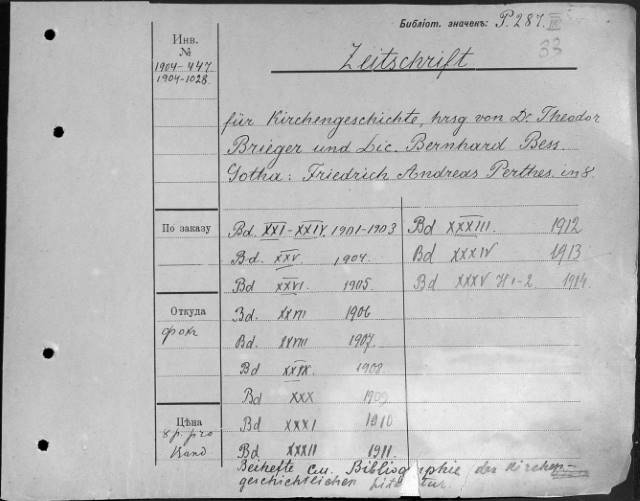 Библіот. значекъ: P. 287. III
33
Инв.
№
1904-447
1904-1028
Zeitschrift
für Kirchengeschichte, hrsg von Dr. Theodor
Brieger und Lic. Bernhard Bess.
Gotha: Friedrich Andreas Perthes. in 8.
По заказу
Bd. XXI-XXIV. 1901-1903
Bd. XXV. 1904.
Bd XXVI. 1905
Откуда
фонг
Bd. XXVII 1906
Bd. XXVIII 1907
Bd XXIX 1908
Bd XXX 1909
Цѣна
8 р. pro
Band
Bd XXXI 1910
Bd XXXII 1911.
Bd XXXIII. 1912
Bd XXXIV 1913
Bd XXXV H 1-2 1914
Beihefte см. Bibliographie der Kirchen-
geschichtlichen Literatur.